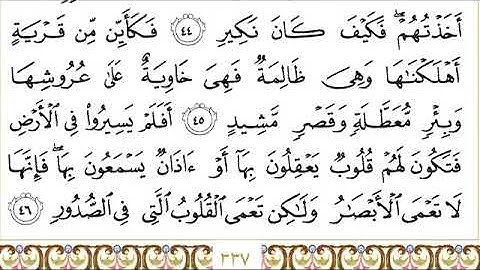 أَخَذۡتُهُمۡۖ فَكَيۡفَ كَانَ نَكِيرِ ٤٤ فَكَأَيِّن مِّن قَرۡيَةٍ
أَهۡلَكۡنَٰهَا وَهِيَ ظَالِمَةٞ فَهِيَ خَاوِيَةٌ عَلَىٰ عُرُوشِهَا
وَبِئۡرٖ مُّعَطَّلَةٖ وَقَصۡرٖ مَّشِيدٍ ٤٥ أَفَلَمۡ يَسِيرُواْ فِي ٱلۡأَرۡضِ
فَتَكُونَ لَهُمۡ قُلُوبٞ يَعۡقِلُونَ بِهَآ أَوۡ ءَاذَانٞ يَسۡمَعُونَ بِهَاۖ فَإِنَّهَا
لَا تَعۡمَى ٱلۡأَبۡصَٰرُ وَلَٰكِن تَعۡمَى ٱلۡقُلُوبُ ٱلَّتِي فِي ٱلصُّدُورِ ٤٦
٣٣٧